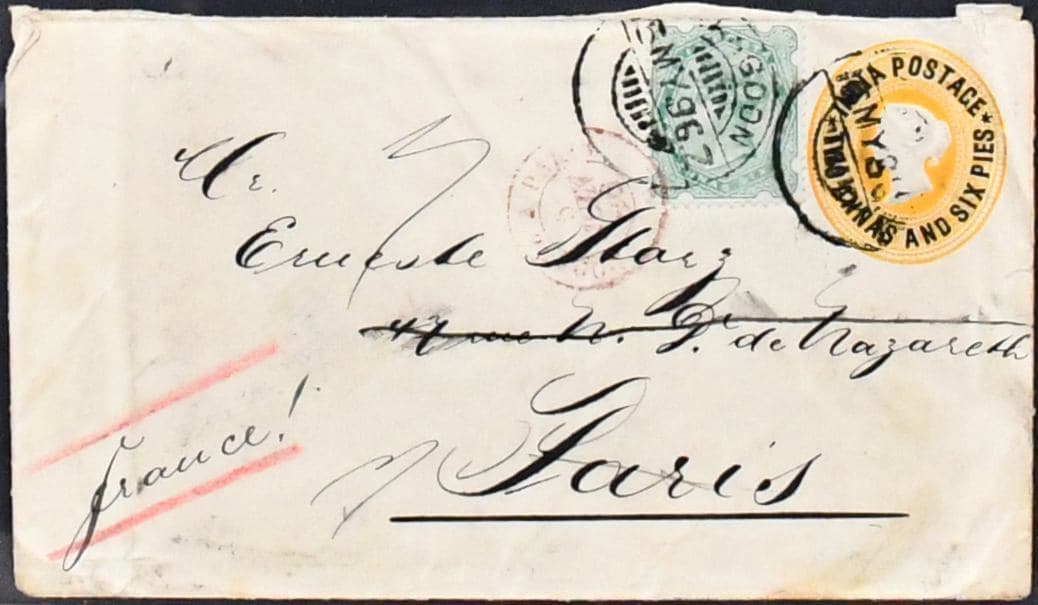 INDIA POSTAGE
TWO ANNAS AND SIX PIES
GOON
MY 96
Mr.
Erneste
47 rue N. D. de Nazareth
Paris
France!